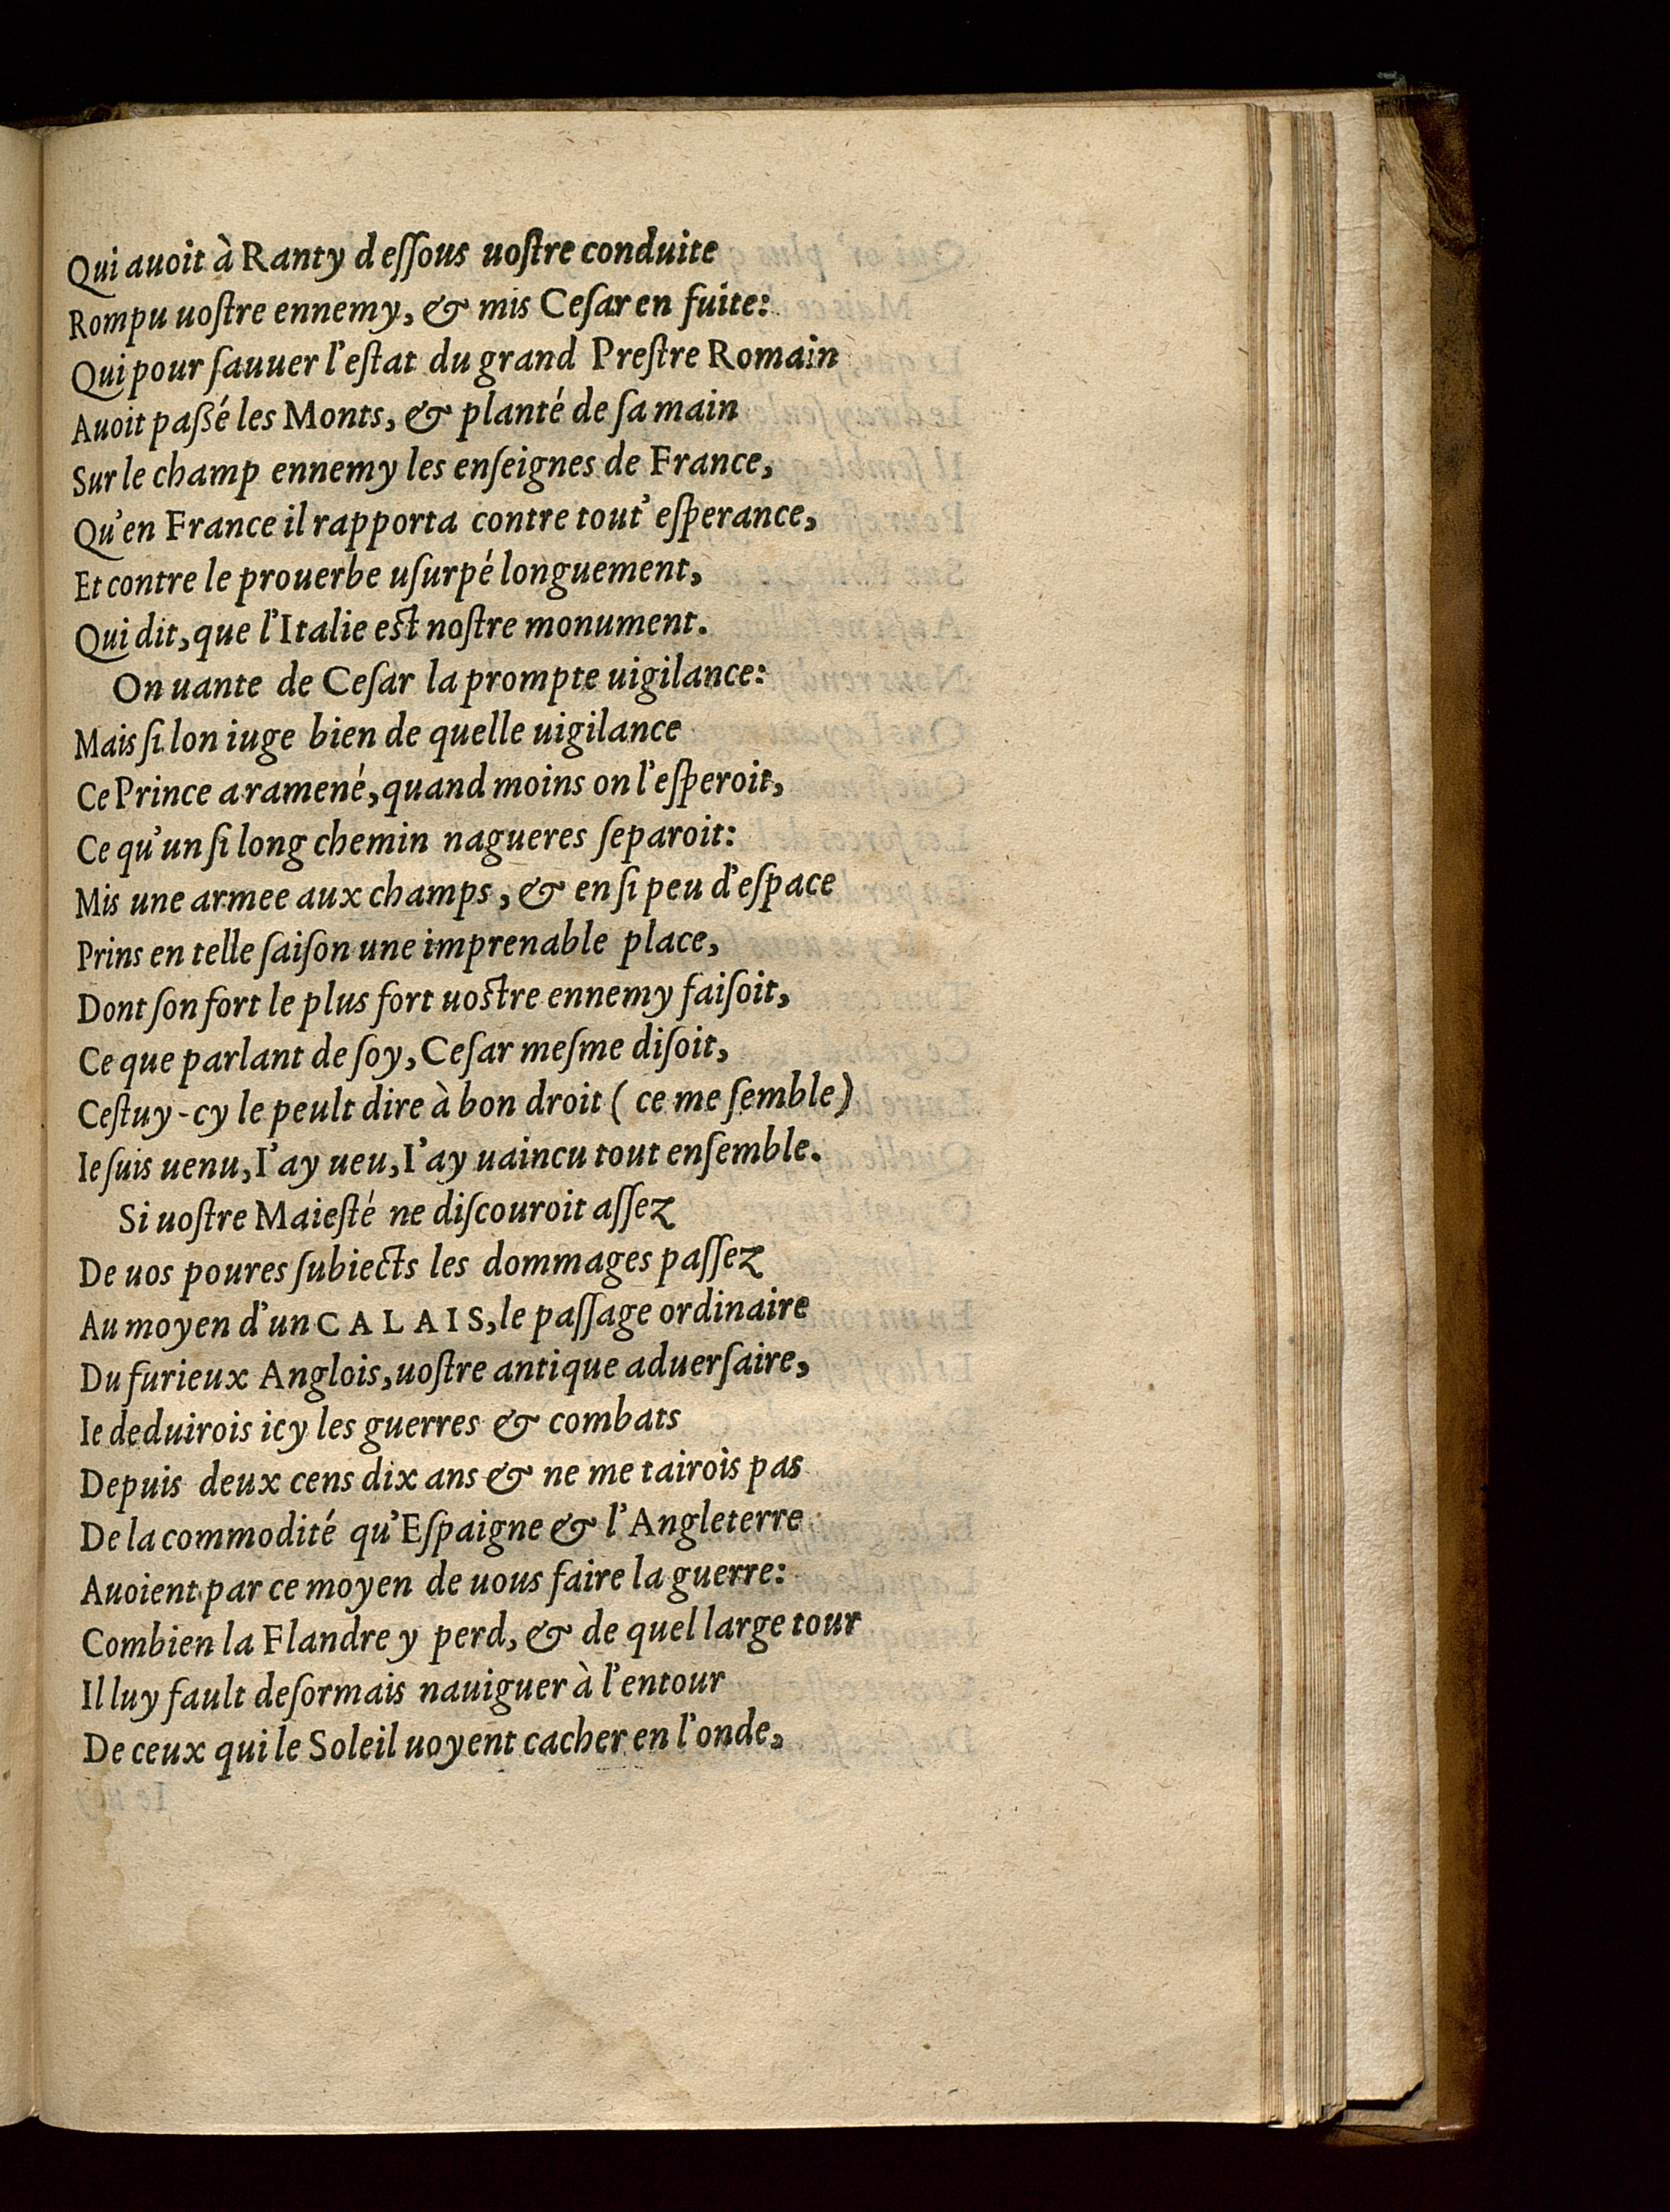 Qui auoit à Ranty deſſous uoſtre conduite
Rompu uoſtre ennemy, & mis Ceſar en fuite:
Qui pour ſauuer l'eſtat du grand Preſtre Romain
Auoit paßé les Monts, & planté de ſa main
Sur le champ ennemy les enſeignes de France,
Qu'en France il rapporta contre tout' eſperance,
Et contre le prouerbe uſurpé longuement,
Qui dit, que l'Italie eſt noſtre monument.
On uante de Ceſar la prompte uigilance:
Mais ſi lon iuge bien de quelle uigilance
Ce Prince a ramené, quand moins on l'eſperoit,
Ce qu'un ſi long chemin nagueres ſeparoit:
Mis une armee aux champs, & en ſi peu d'eſpace
Prins en telle ſaiſon une imprenable place,
Dont ſon fort le plus fort uoſtre ennemy faiſoit,
Ce que parlant de ſoy, Ceſar meſme diſoit,
Ceſtuy-cy le peult dire à bon droit ( ce me ſemble)
Ie ſuis uenu, I'ay ueu, I'ay uaincu tout enſemble.
Si uoſtre Maieſté ne diſcouroit aſſez
De uos poures ſubiects les dommages paſſez
Au moyen d'un CALAIS, le paſſage ordinaire
Du furieux Anglois, uoſtre antique aduerſaire,
Ie deduirois icy les guerres & combats
Depuis deux cens dix ans & ne me tairois pas
De la commodité qu'Eſpaigne & l'Angleterre
Auoient par ce moyen de uous faire la guerre:
Combien la Flandre y perd, & de quel large tour
Il luy fault deſormais nauiguer à l'entour
De ceux qui le Soleil uoyent cacher en l'onde,